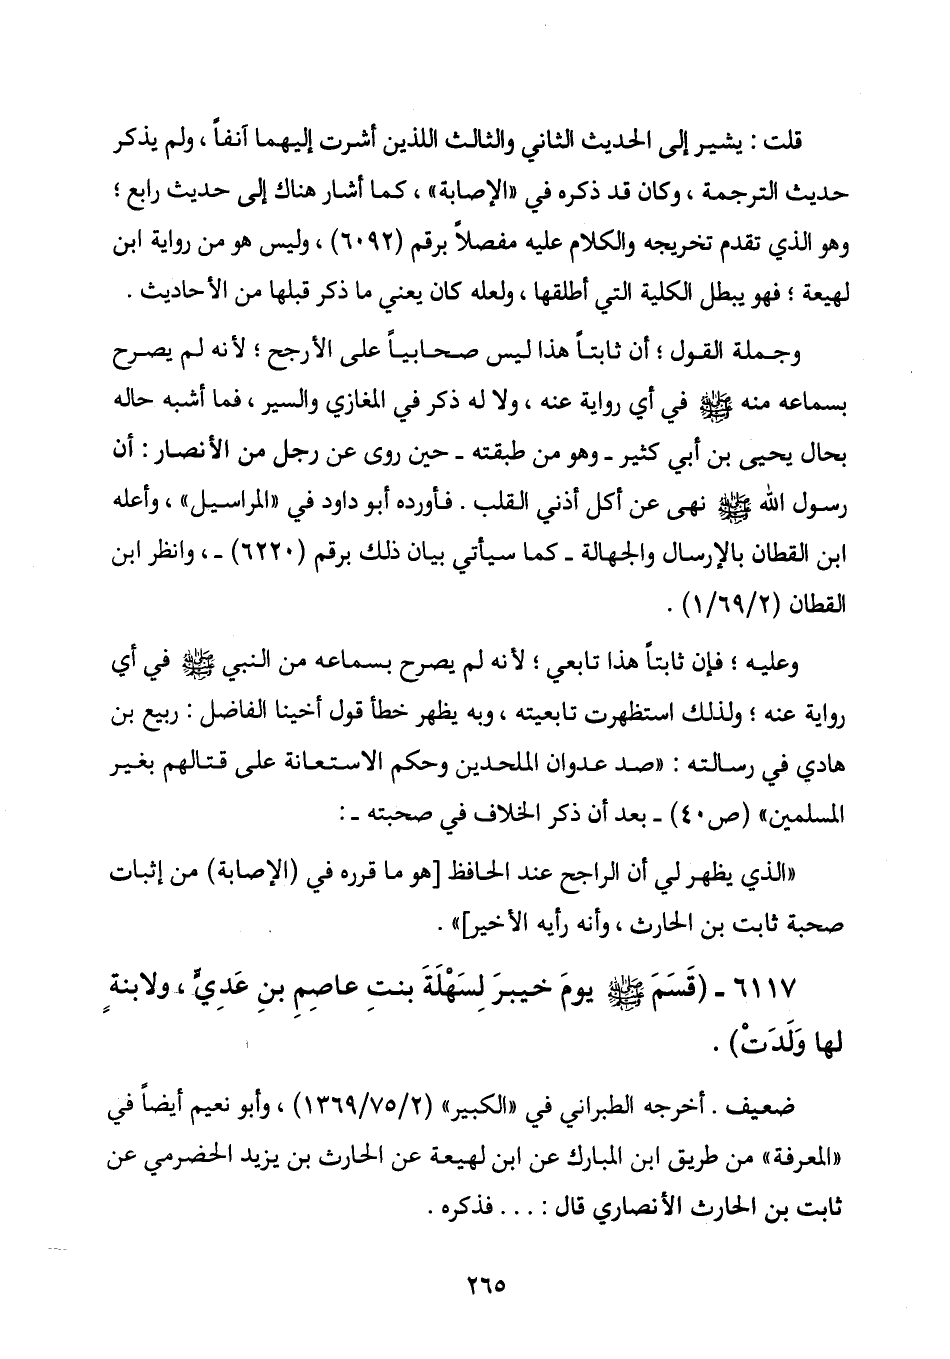 قلت : يشير إلى الحديث الثاني والثالث اللذين أشرت إليهما آنفاً ، ولم يذكر
حديث الترجمة ، وكان قد ذكره في «الإصابة» ، كما أشار هناك إلى حديث رابع ؛
وهو الذي تقدم تخريجه والكلام عليه مفصلاً برقم (٦٠٩٢) ، وليس هو من رواية ابن
لهيعة ؛ فهو يبطل الكلية التي أطلقها ، ولعله كان يعني ما ذكر قبلها من الأحاديث .
وجملة القول ؛ أن ثابتاً هذا ليس صحابياً على الأرجح ؛ لأنه لم يصرح
بسماعه منه ﷺ في أي رواية عنه ، ولا له ذكر في المغازي والسير ، فما أشبه حاله
بحال يحيى بن أبي كثير ـ وهو من طبقته ـ حين روى عن رجل من الأنصار : أن
رسول الله ﷺ نهى عن أكل أذني القلب . فأورده أبو داود في «المراسيل» ، وأعله
ابن القطان بالإرسال والجهالة ـ كما سيأتي بيان ذلك برقم (٦٢٢٠) ـ ، وانظر ابن
القطان (١/٦٩/٢) .
وعليه ؛ فإن ثابتاً هذا تابعي ؛ لأنه لم يصرح بسماعه من النبي ﷺ في أي
رواية عنه ؛ ولذلك استظهرت تابعيته ، وبه يظهر خطأ قول أخينا الفاضل : ربيع بن
هادي في رسالته : «صد عدوان الملحدين وحكم الاستعانة على قتالهم بغير
المسلمين» (ص٤٠) ـ بعد أن ذكر الخلاف في صحبته ـ :
«الذي يظهر لي أن الراجح عند الحافظ [هو ما قرره في (الإصابة) من إثبات
صحبة ثابت بن الحارث ، وأنه رأيه الأخير]» .
٦١١٧ ـ (قَسَمَ ﷺ يومَ خيبرَ لِسَهْلَةَ بنتِ عاصِمِ بنِ عَدِيٍّ ، ولابنةٍ
لها وَلَدَتْ) .
ضعيف . أخرجه الطبراني في «الكبير» (١٣٦٩/٧٥/٢) ، وأبو نعيم أيضاً في
«المعرفة» من طريق ابن المبارك عن ابن لهيعة عن الحارث بن يزيد الحضرمي عن
ثابت بن الحارث الأنصاري قال : . . . فذكره .
٢٦٥